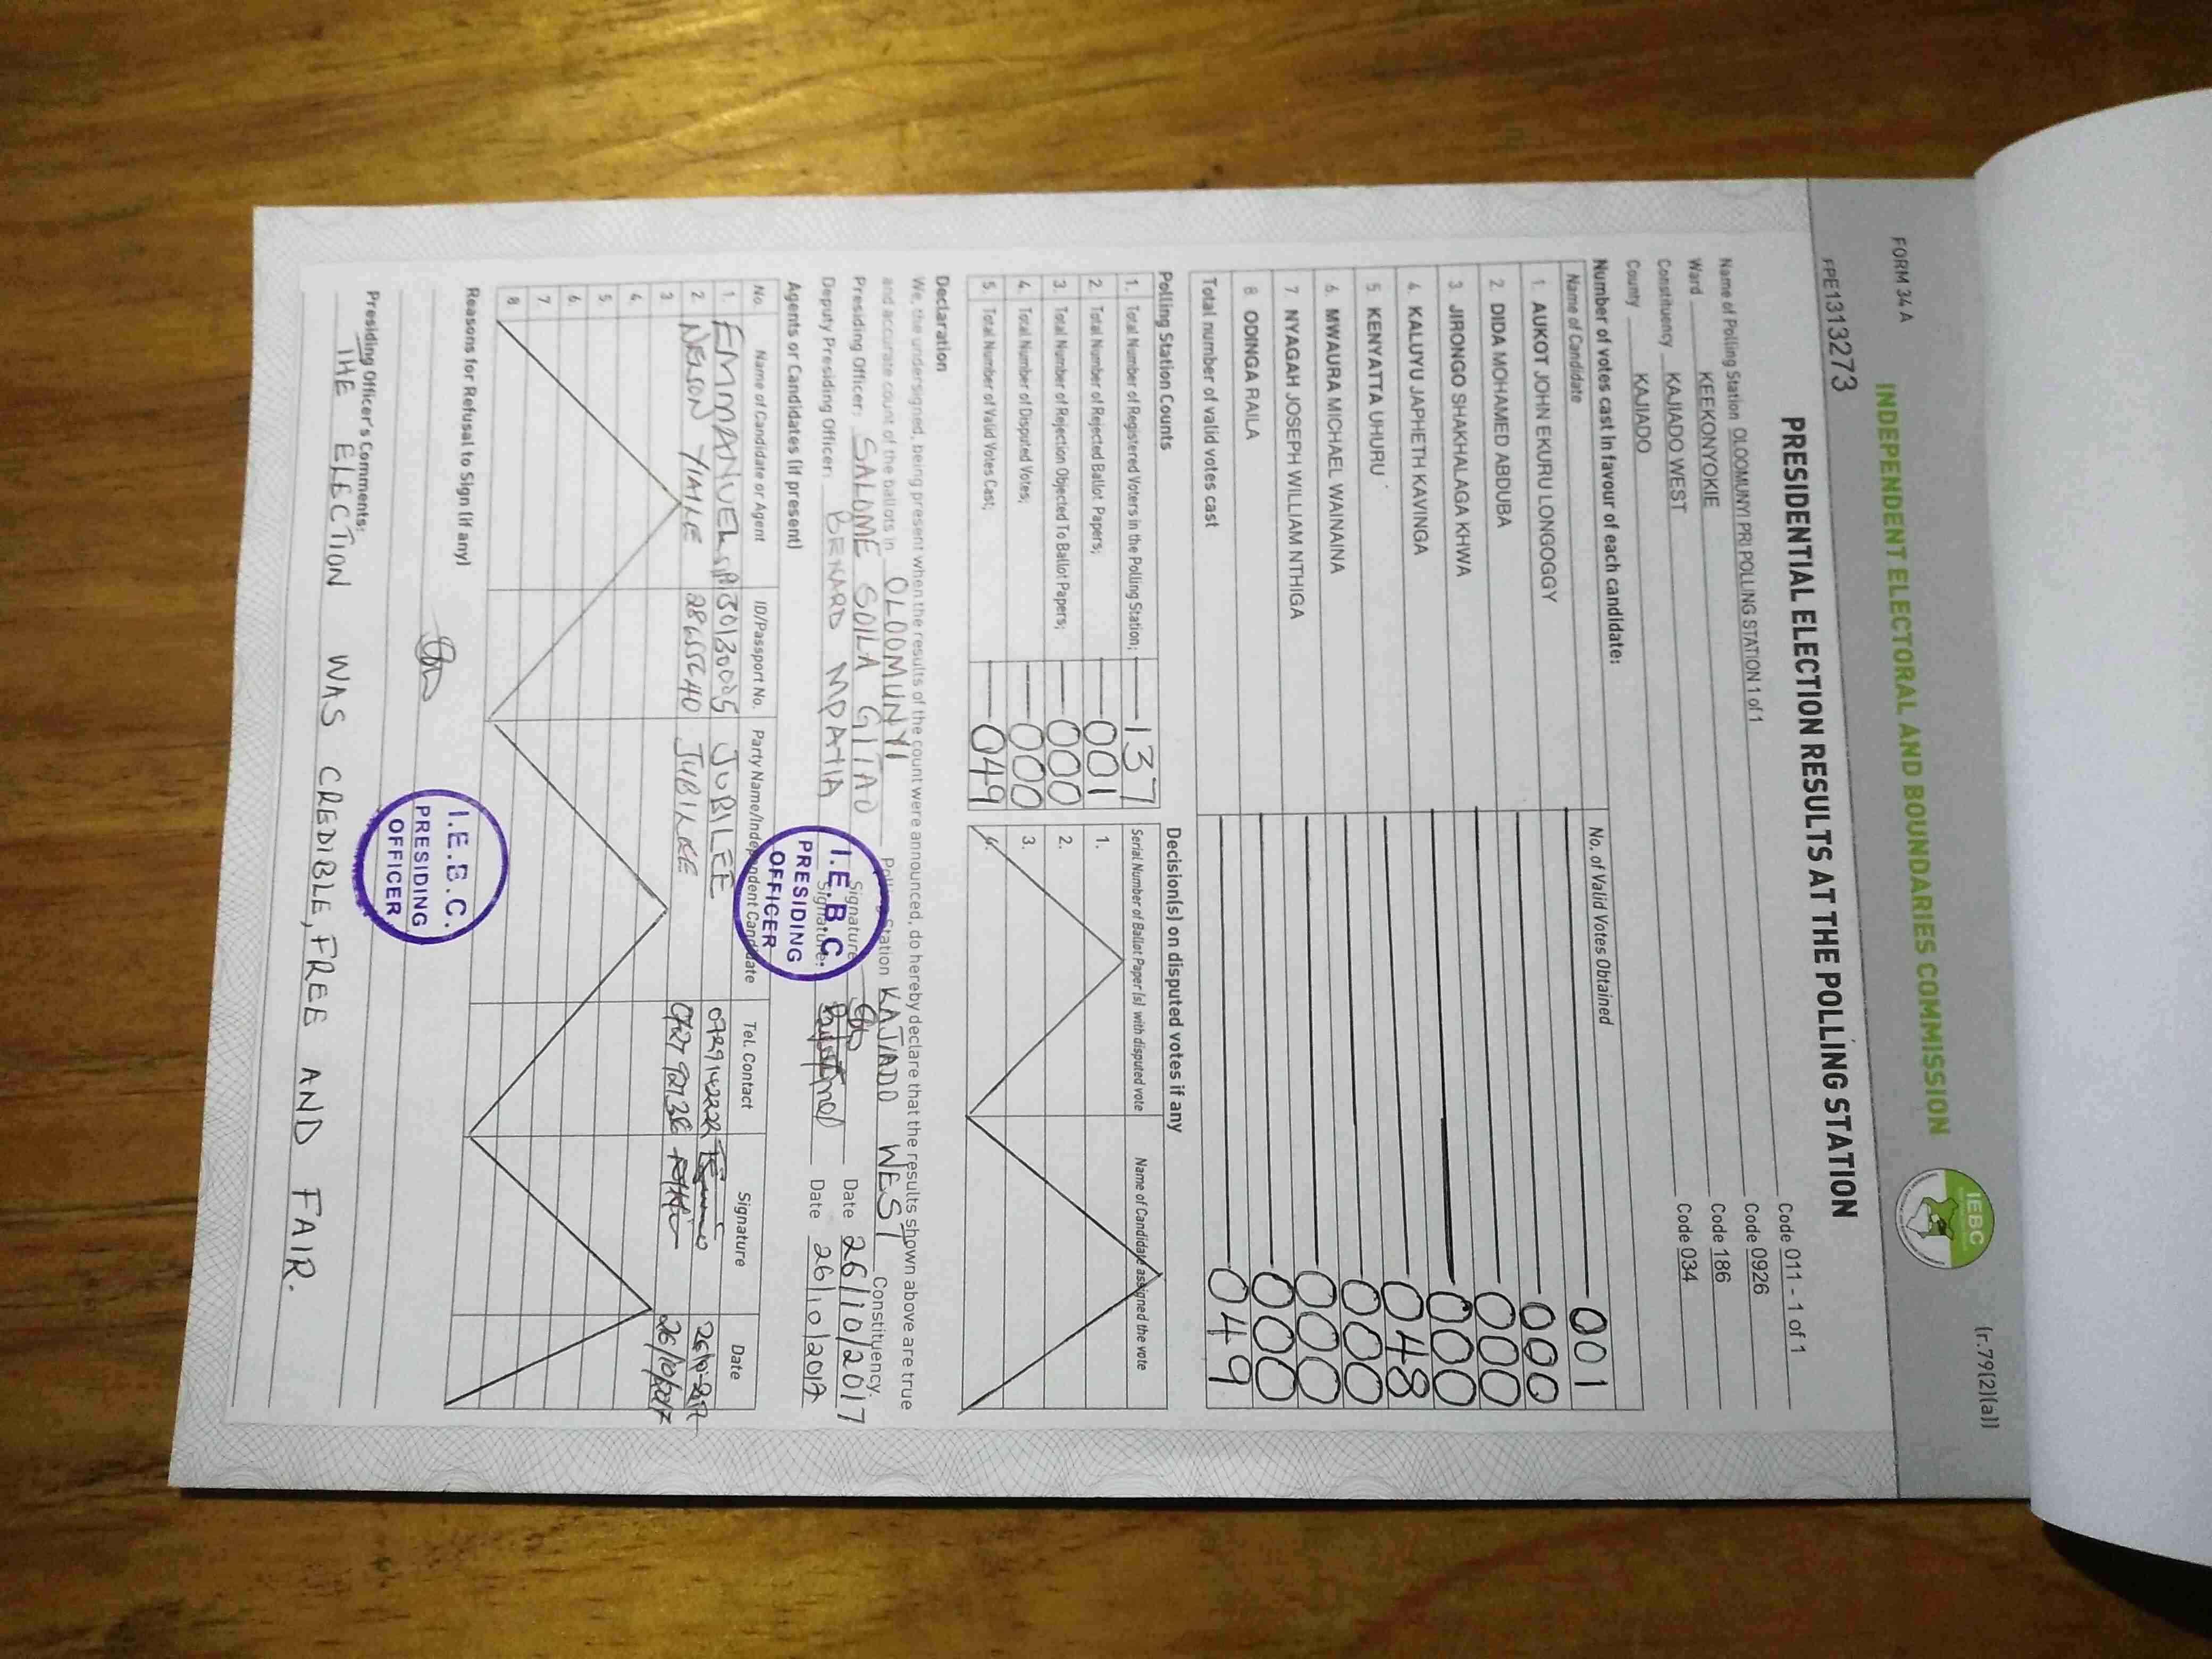 FORM 34A
(r.79(2)(a))
INDEPENDENT ELECTORAL AND BOUNDARIES COMMISSION
IEBC
FPE1313273
PRESIDENTIAL ELECTION RESULTS AT THE POLLING STATION
Name of Polling Station OLOOMUNYI PRI POLLING STATION 1 of 1 Code 011 - 1 of 1
Ward KEEKONYOKIE Code 0926
Constituency KAJIADO WEST Code 186
County KAJIADO Code 034
Number of votes cast in favour of each candidate:
Name of Candidate No. of Valid Votes Obtained
1. AUKOT JOHN EKURU LONGOGGY 001
2. DIDA MOHAMED ABDUBA 000
3. JIRONGO SHAKHALAGA KHWA 000
4. KALUYU JAPHETH KAVINGA 000
5. KENYATTA UHURU 048
6. MWAURA MICHAEL WAINAINA 000
7. NYAGAH JOSEPH WILLIAM NTHIGA 000
8. ODINGA RAILA 000
Total number of valid votes cast 049
Polling Station Counts
1. Total Number of Registered Voters in the Polling Station; 137
2. Total Number of Rejected Ballot Papers; 001
3. Total Number of Rejection Objected To Ballot Papers; 000
4. Total Number of Disputed Votes; 000
5. Total Number of Valid Votes Cast; 049
Decision(s) on disputed votes if any
Serial Number of Ballot Paper (s) with disputed vote Name of Candidate assigned the vote
1.
2.
3.
4.
Declaration
We, the undersigned, being present when the results of the count were announced, do hereby declare that the results shown above are true
and accurate count of the ballots in OLOOMUNYI Polling Station KAJIADO WEST Constituency.
Presiding Officer: SALOME SOILA GITAO Signature Date 26/10/2017
Deputy Presiding Officer: BENARD MPATIA Signature: Date 26/10/2017
I.E.B.C.
PRESIDING
OFFICER
Agents or Candidates (if present)
No. Name of Candidate or Agent ID/Passport No. Party Name/Independent Candidate Tel. Contact Signature Date
1. EMMANUEL JUBILEE
2. NELSON YIAILE JUBILEE 26/10/2017
3.
4.
5.
6.
7.
8.
Reasons for Refusal to Sign (if any)
I.E.B.C.
PRESIDING
OFFICER
Presiding Officer's Comments:
THE ELECTION WAS CREDIBLE, FREE AND FAIR.